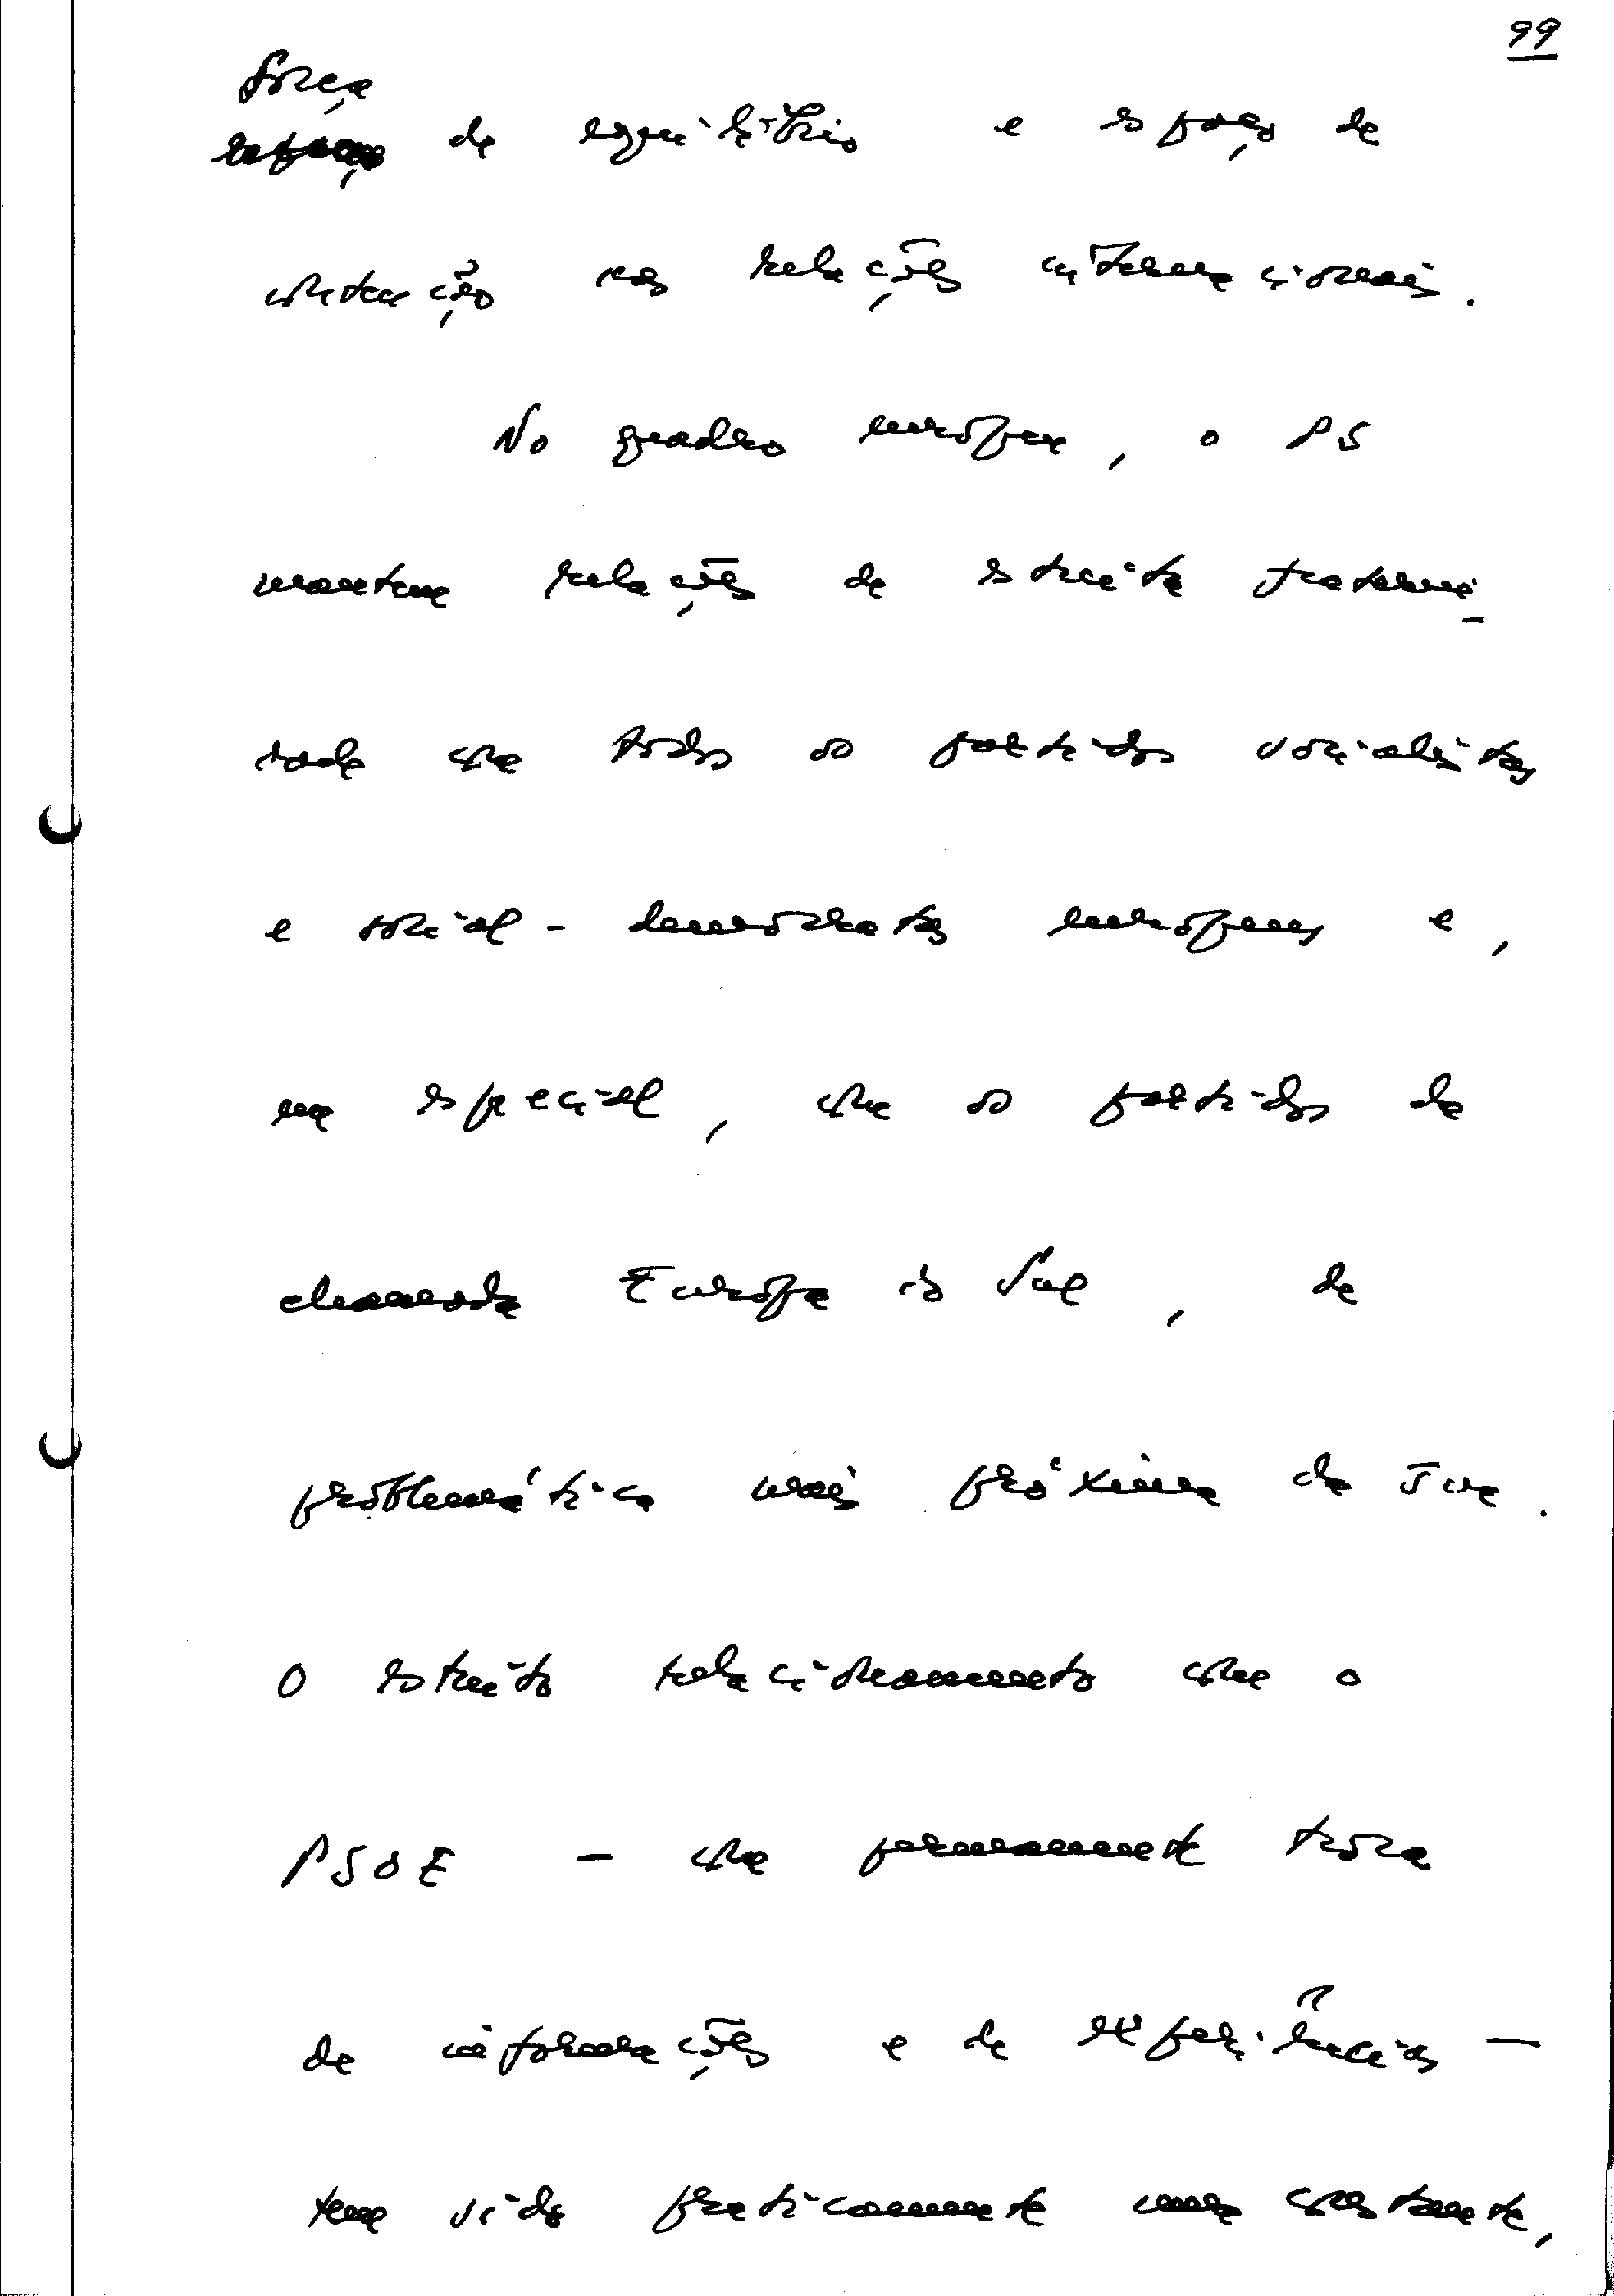 99
força
de equilíbrio e espaço de
nas relações internacionais.
No quadro europeu, o PS
mantem relações de estreita fraterni-
dade com todos os partidos socialistas
e social-democratas europeus e,
em especial, com os partidos da
chamada Europa do Sul, de
problemática mais próxima da sua.
O estreito relacionamento com o
PSOE - com permanente troca
de informações e de experiências -
tem sido praticamente uma constante,